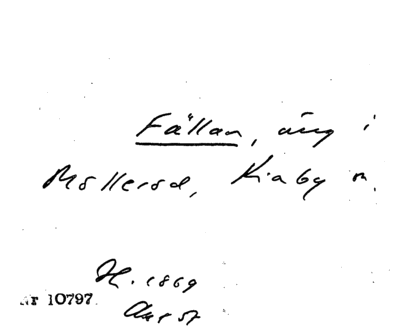 Fällan, äng i
Möllerod, Kiaby sn.
H. 1869
Nr 10797